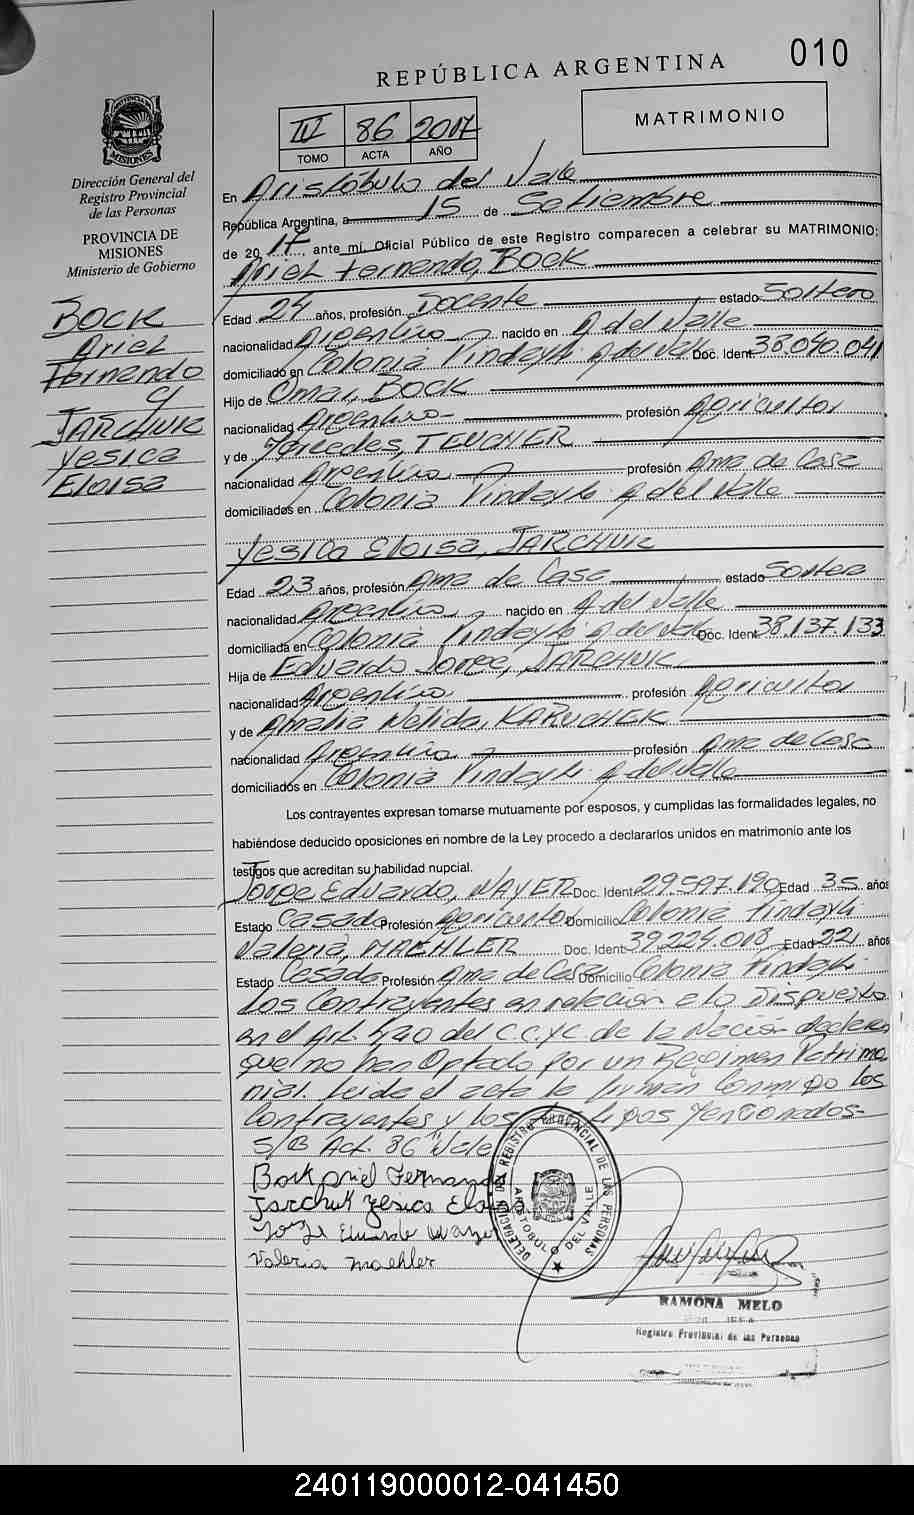 010
REPÚBLICA ARGENTINA
IV 86 2017
TOMO ACTA AÑO
MATRIMONIO
PROVINCIA DE MISIONES
Dirección General del
Registro Provincial
de las Personas
PROVINCIA DE
MISIONES
Ministerio de Gobierno
BOCK
Ariel
Fernando
y
JARCHUK
Yesica
Eloisa
En Aristóbulo del Valle
República Argentina, a 15 de Setiembre
de 2017, ante mi, Oficial Público de este Registro comparecen a celebrar su MATRIMONIO:
Ariel Fernando, BOCK
Edad 24 años, profesión Docente estado Soltero
nacionalidad Argentino nacido en A. del Valle
domiciliado en Colonia Pindayti A. del Valle Doc. Ident. 38.040.041
Hijo de Omar, BOCK
nacionalidad Argentino profesión Agricultor
y de Mercedes, TEUCHER
nacionalidad Argentina profesión Ama de Casa
domiciliados en Colonia Pindayti A. del Valle
Yesica Eloisa, JARCHUK
Edad 23 años, profesión Ama de Casa estado Soltera
nacionalidad Argentina nacido en A. del Valle
domiciliada en Colonia Pindayti A. del Valle Doc. Ident. 38.137.133
Hija de Eduardo Jorge, JARCHUK
nacionalidad Argentino profesión Agricultor
y de Amalia Nélida,
nacionalidad Argentina profesión Ama de Casa
domiciliados en Colonia Pindayti A. del Valle
Los contrayentes expresan tomarse mutuamente por esposos, y cumplidas las formalidades legales, no
habiéndose deducido oposiciones en nombre de la Ley procedo a declararlos unidos en matrimonio ante los
testigos que acreditan su habilidad nupcial.
Jorge Eduardo, Doc. Ident. 29.597.190 Edad 35 años
Estado Casado Profesión Agricultor Domicilio Colonia Pindayti
Valeria, MAEHLER Doc. Ident. 39.224.018 Edad 22 años
Estado Casada Profesión Ama de Casa Domicilio Colonia Pindayti
Los Contrayentes en relación a lo Dispuesto
en el Art. 420 del C.C.yC. de la Nación declaran
que no han Optado por un Regimen Patrimo
nial. leida el acta la firman Conmigo los
Contrayentes y los testigos Mencionados-
S/B Act. 86 "Vale"
Bock Ariel Fernando
Jarchuk Yesica Eloisa
Jorge Eduardo
Valeria Maehler
DELEGACION DEL REGISTRO PROVINCIAL DE LAS PERSONAS
ARISTOBULO DEL VALLE
RAMONA MELO
Registro Provincial de las Personas
240119000012-041450